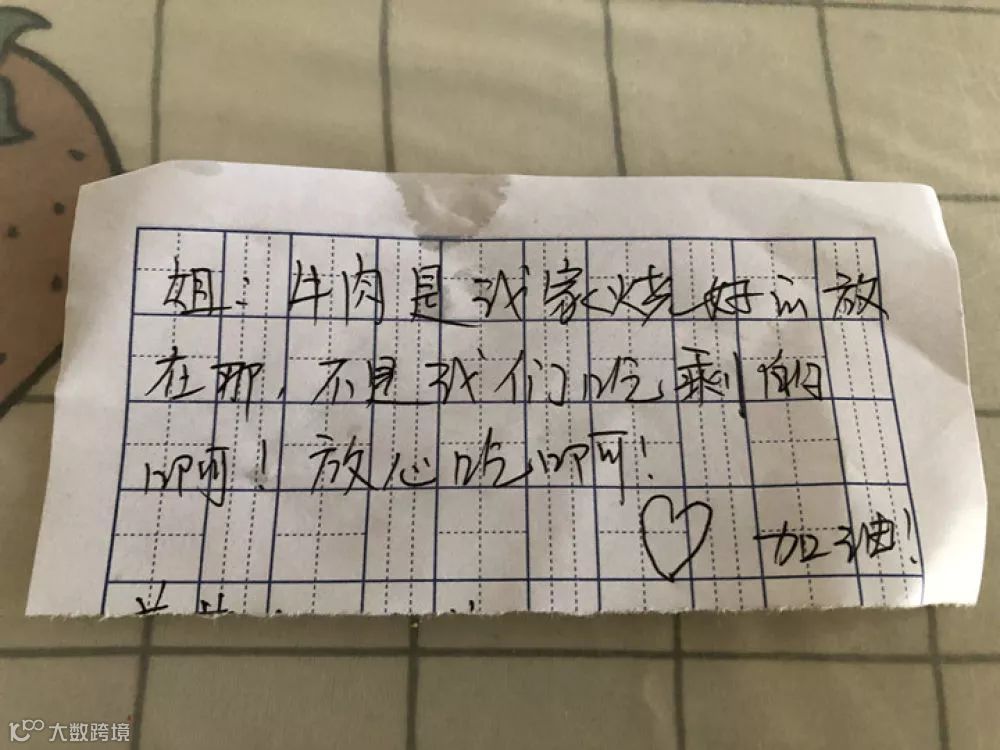 姐：牛肉是我家烧好的放
在那，不是我们吃剩的
啊！放心吃啊！
♡ 加油！
大数跨境